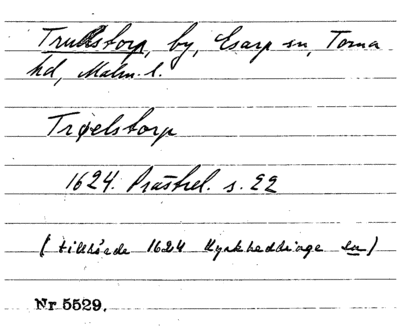 Trullstorp, by, Esarp sn, Torna
hd, Malm. l.
Trøelstorp
1624. Prästrel. s. 22
(tillhörde 1624 Kyrkheddinge sn)
Nr 5529.